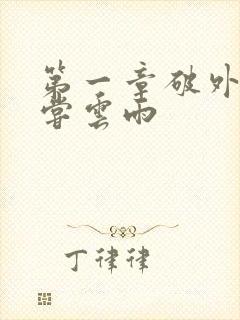 第一章破外
雲雨
丁律律